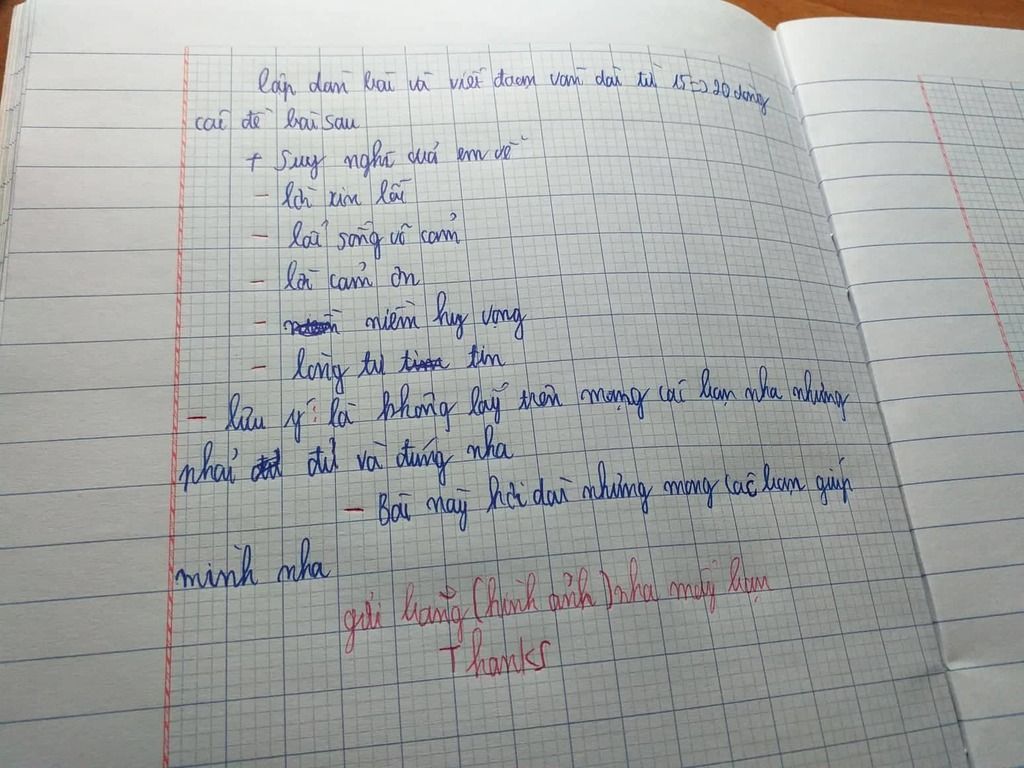 lập dàn bài và viết đoạn văn dài từ 15->20 dòng
các đề bài sau
+ Suy nghĩ của em về
- lời xin lỗi
- lối sống vô cảm
- lời cảm ơn
- niềm hy vọng
- lòng tự tin
- lưu ý: là không lấy trên mạng các bạn nha nhưng
phải đủ và đúng nha
- Bài này hơi dài nhưng mong các bạn giúp
mình nha
gửi bằng (hình ảnh) nha mấy bạn
Thanks